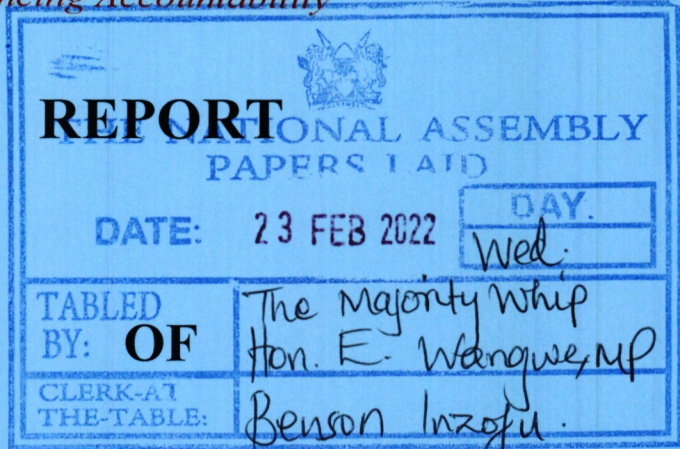 ncing Accountability
REPORT
THE NATIONAL ASSEMBLY
PAPERS LAID
DATE: 23 FEB 2022
DAY.
Wed.
TABLED BY:
The Majority Whip
Hon. E. Wangwe, MP
OF
CLERK-AT THE-TABLE:
Benson Inzofu.